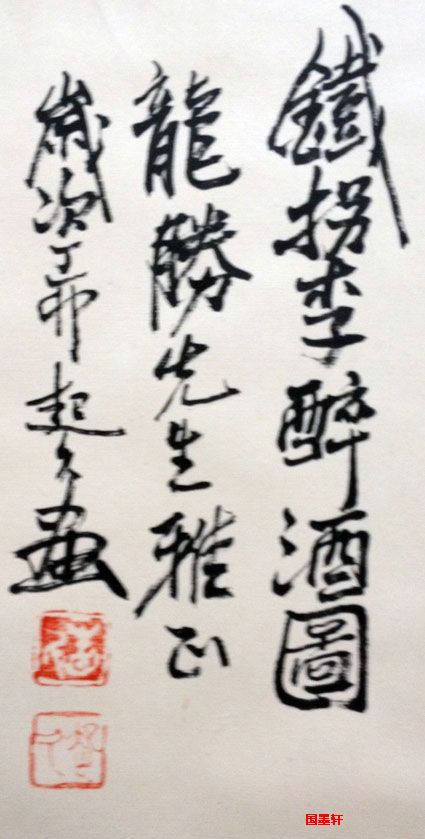 鐵拐李醉酒圖
龍勝先生雅正
歲次丁卯起久畫
国墨轩